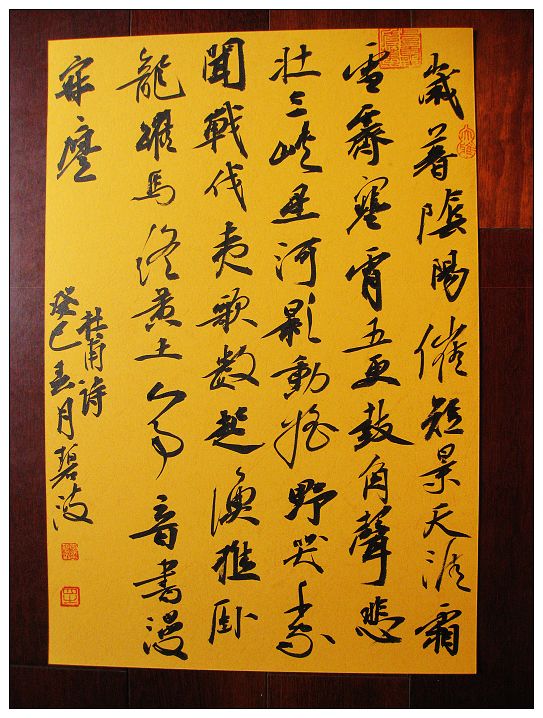 歲暮陰陽催短景天涯霜
雪霽寒宵五更鼓角聲悲
壯三峽星河影動搖野哭千家
聞戰伐夷歌數起漁樵臥
龍躍馬終黃土人事音書漫
寂寥
杜甫詩
癸巳春月碧波